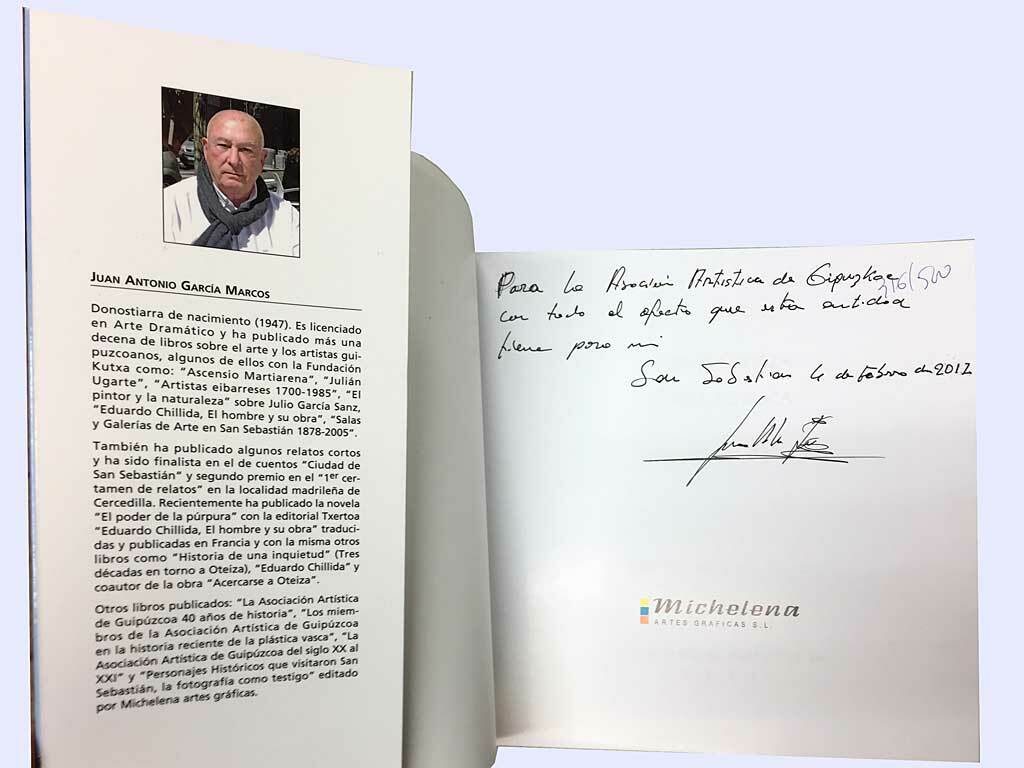 JUAN ANTONIO GARCÍA MARCOS
Donostiarra de nacimiento (1947). Es licenciado
en Arte Dramático y ha publicado más una
decena de libros sobre el arte y los artistas gui-
puzcoanos, algunos de ellos con la Fundación
Kutxa como: "Ascensio Martiarena", "Julián
Ugarte", "Artistas eibarreses 1700-1985", "El
pintor y la naturaleza" sobre Julio García Sanz,
"Eduardo Chillida, El hombre y su obra", "Salas
y Galerías de Arte en San Sebastián 1878-2005".
También ha publicado algunos relatos cortos
y ha sido finalista en el de cuentos "Ciudad de
San Sebastián" y segundo premio en el "1er cer-
tamen de relatos" en la localidad madrileña de
Cercedilla. Recientemente ha publicado la novela
"El poder de la púrpura" con la editorial Txertoa
"Eduardo Chillida, El hombre y su obra" traduci-
das y publicadas en Francia y con la misma otros
libros como "Historia de una inquietud" (Tres
décadas en torno a Oteiza), "Eduardo Chillida" y
coautor de la obra "Acercarse a Oteiza".
Otros libros publicados: "La Asociación Artística
de Guipúzcoa 40 años de historia", "Los miem-
bros de la Asociación Artística de Guipúzcoa
en la historia reciente de la plástica vasca", "La
Asociación Artística de Guipúzcoa del siglo XX al
XXI" y "Personajes Históricos que visitaron San
Sebastián, la fotografía como testigo" editado
por Michelena artes gráficas.
Para la Asociación Artistica de Gipuzkoa
con todo el afecto que esta entidad
tiene para mi
San Sebastian 4 de febrero de 2012
Michelena
ARTES GRAFICAS S.L.